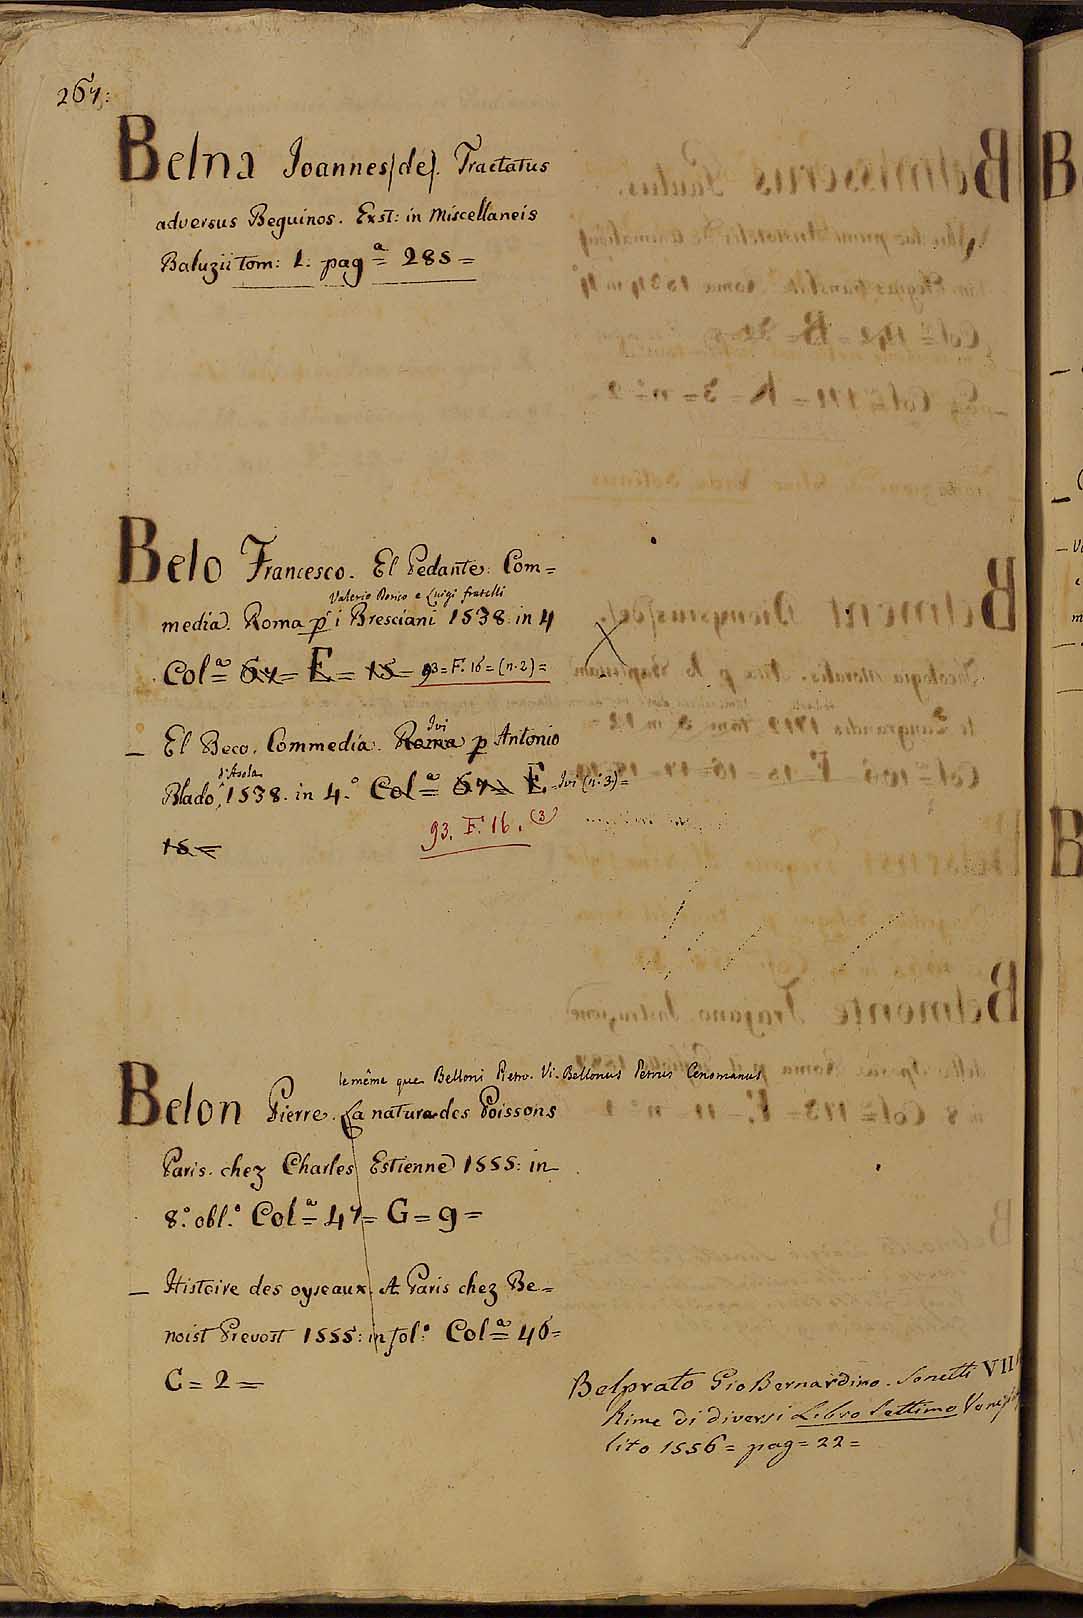 267:
Belna Joannes (de). Tractatus
adversus Beguinos. Exst: in Miscellaneis
Baluzii tom: 1. pag.ª 285=
Belo Francesco. El Pedante: Com=
Valerio Dorico e Luigi fratelli
media. Roma p i Bresciani 1538: in 4
Col.ª= 67= E= 15= 93=F.16=(n.2)=
Ivi
_ El Beco. Commedia. Roma p Antonio
d'Asola
Blado, 1538. in 4.º Col.ª= 67= E=Ivi (n.3)=
93. F. 16. (3)
15=
le même que Belloni Pietro. Vi. Bellonus Petrus Cenomanus
Belon Pierre. La natura des Poissons
Paris. chez Charles Estienne 1555: in
8.º obl.º Col.ª= 47= G= 9=
_ Histoire des oyseaux. A Paris chez Be=
noist Prevost 1555: in fol.º Col.ª= 46=
C= 2=
Belprato Gio Bernardino. Sonetti VII
Rime di diversi Libro Settimo
lito 1556= pag= 22=